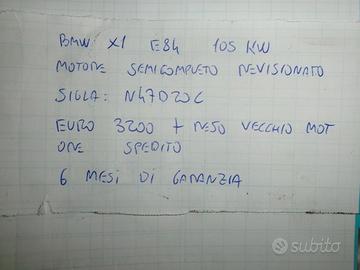 BMW X1 E84 105 KW
MOTORE SEMICOMPLETO REVISIONATO
SIGLA: N47D20C
EURO 3200 + RESO VECCHIO MOT
ORE SPEDITO
6 MESI DI GARANZIA
subito